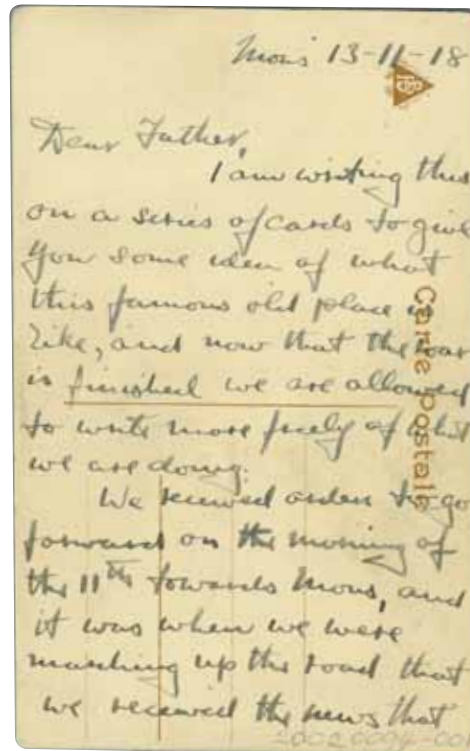 Mons 13-11-18
Dear Father,
I am writing this
on a series of cards to give
you some idea of what
this famous old place is
like, and now that the war
is finished we are allowed
to write more freely of what
we are doing.
We received orders to go
forward on the morning of
the 11th towards Mons, and
it was when we were
marching up the road that
we received the news that
Carte Postale